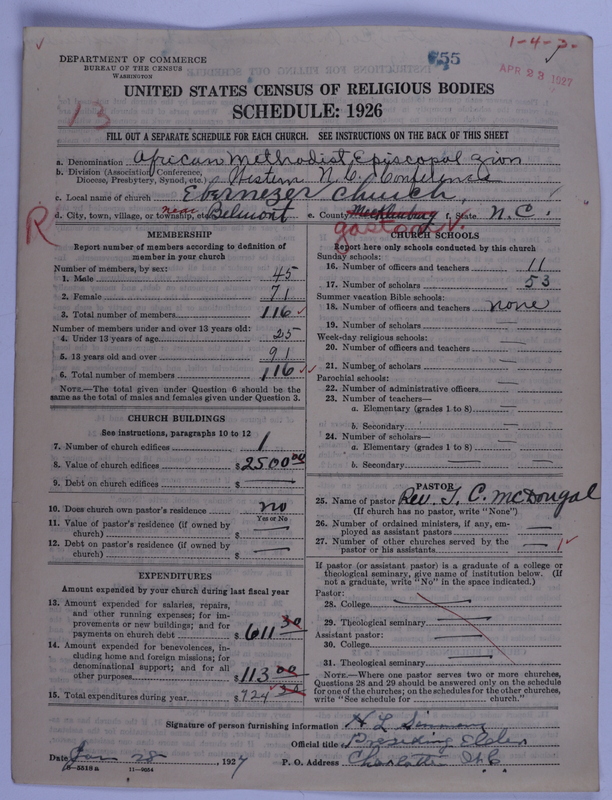 1-4-3.
DEPARTMENT OF COMMERCE
BUREAU OF THE CENSUS
WASHINGTON
655
APR 23 1927
UNITED STATES CENSUS OF RELIGIOUS BODIES
13
SCHEDULE: 1926
FILL OUT A SEPARATE SCHEDULE FOR EACH CHURCH. SEE INSTRUCTIONS ON THE BACK OF THIS SHEET
a. Denomination African Methodist Episcopal Zion
b. Division (Association, Conference, Diocese, Presbytery, Synod, etc.) Western N.C. Conference
c. Local name of church Ebernezer Church,
d. City, town, village, or township, etc. near Belmont e. County Mecklenburg f. State N.C.
R
gaston
MEMBERSHIP
Report number of members according to definition of
member in your church
Number of members, by sex:
1. Male 45
2. Female 71
3. Total number of members 116
Number of members under and over 13 years old:
4. Under 13 years of age 25
5. 13 years old and over 91
6. Total number of members 116
NOTE.—The total given under Question 6 should be the
same as the total of males and females given under Question 3.
CHURCH BUILDINGS
See instructions, paragraphs 10 to 12
7. Number of church edifices 1
8. Value of church edifices $2500 00
9. Debt on church edifices $
10. Does church own pastor's residence no
Yes or No
11. Value of pastor's residence (if owned by
church) $
12. Debt on pastor's residence (if owned by
church) $
EXPENDITURES
Amount expended by your church during last fiscal year
13. Amount expended for salaries, repairs,
and other running expenses; for im-
provements or new buildings; and for
payments on church debt $611 30
14. Amount expended for benevolences, in-
cluding home and foreign missions; for
denominational support; and for all
other purposes $113 00
15. Total expenditures during year $724 30
CHURCH SCHOOLS
Report here only schools conducted by this church
Sunday schools:
16. Number of officers and teachers 11
17. Number of scholars 53
Summer vacation Bible schools:
18. Number of officers and teachers none
19. Number of scholars
Week-day religious schools:
20. Number of officers and teachers
21. Number of scholars
Parochial schools:
22. Number of administrative officers
23. Number of teachers—
a. Elementary (grades 1 to 8)
b. Secondary
24. Number of scholars—
a. Elementary (grades 1 to 8)
b. Secondary
PASTOR
25. Name of pastor Rev. J. C. McDougal
(If church has no pastor, write "None")
26. Number of ordained ministers, if any, em-
ployed as assistant pastors
27. Number of other churches served by the
pastor or his assistants 1
If pastor (or assistant pastor) is a graduate of a college or
theological seminary, give name of institution below. (If
not a graduate, write "No" in the space indicated.)
Pastor:
28. College
29. Theological seminary
Assistant pastor:
30. College
31. Theological seminary
NOTE.—Where one pastor serves two or more churches,
Questions 28 and 29 should be answered only on the schedule
for one of the churches; on the schedules for the other churches,
write "See schedule for church."
Signature of person furnishing information H L Simmons
Official title Presiding Elder
Date Jan 28, 1927 P. O. Address Charlotte N.C
8-5518a 11-9004